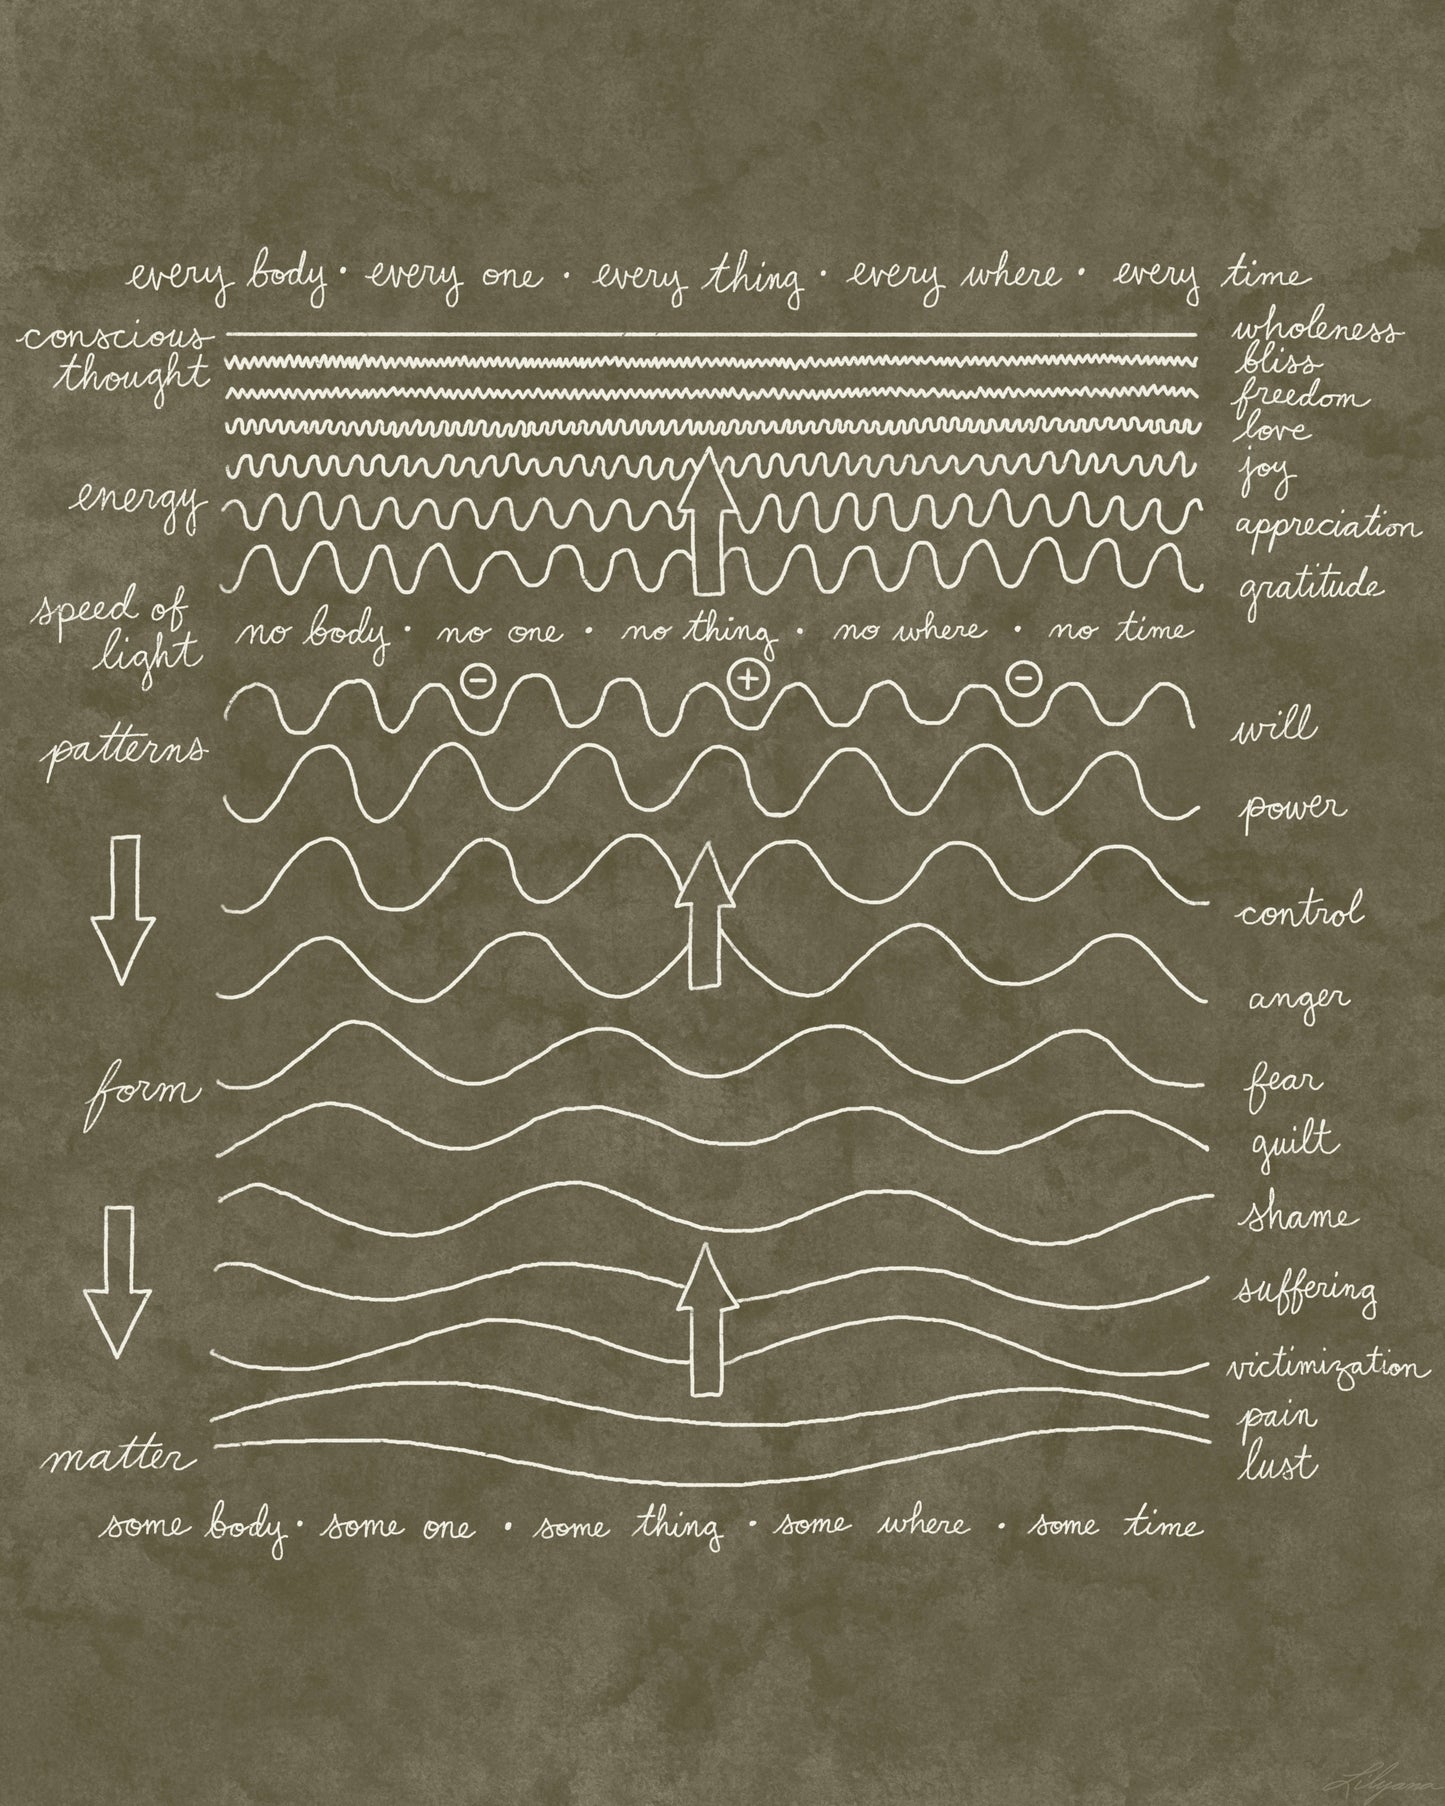 every body · every one · every thing · every where · every time
conscious
thought
wholeness
bliss
freedom
love
joy
energy
appreciation
gratitude
speed of
light
no body · no one · no thing · no where · no time
− + −
patterns
will
power
control
anger
form
fear
guilt
shame
suffering
victimization
pain
matter
lust
some body · some one · some thing · some where · some time
Lilyana